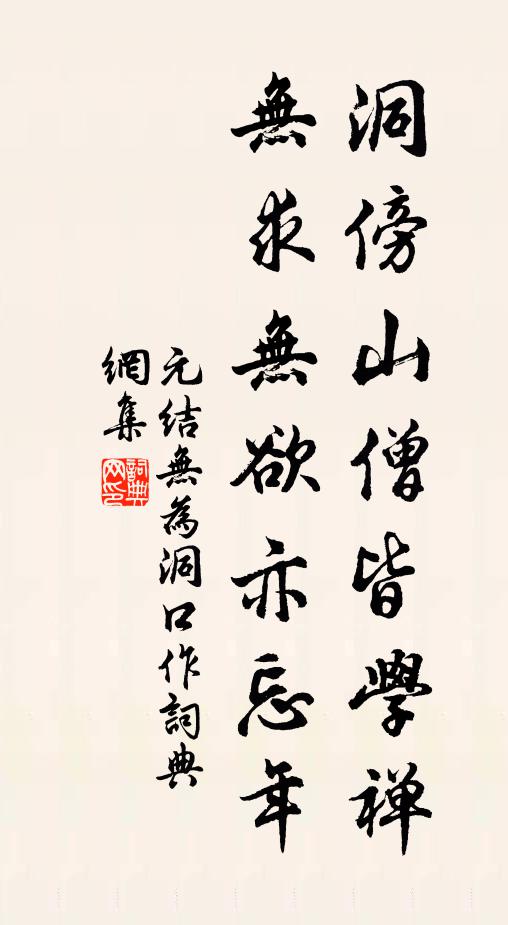 洞傍山僧皆學禪
無求無欲亦忘年
元結無為洞口作詞典
網集
詞典網印